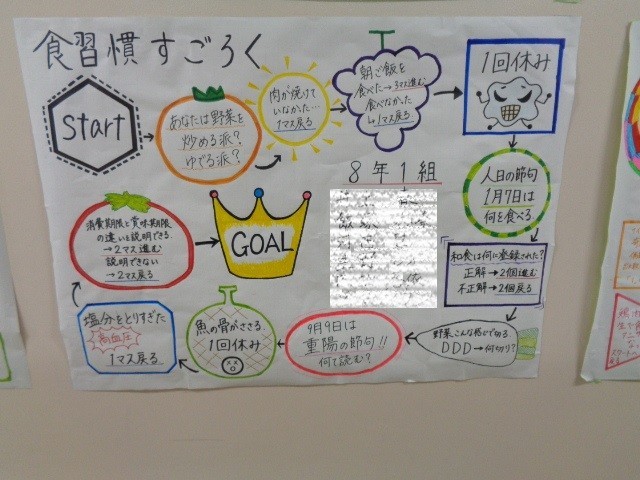 食習慣すごろく
Start
あなたは野菜を
炒める派?
ゆでる派?
肉が焼けて
いなかった…
1マス戻る
朝ご飯を
食べた→3マス進む
食べなかった
↳1マス戻る
1回休み
人日の節句
1月7日は
何を食べる
和食は何に登録された?
正解→2個進む
不正解→2個戻る
野菜こんな感じで切る
DDD→何切り?
9月9日は
重陽の節句!!
何て読む?
魚の骨がささる
1回休み
塩分をとりすぎた
高血圧
1マス戻る
消費期限と賞味期限
の違いを説明できる
→2マス進む
説明できない
→2マス戻る
GOAL
8年1組